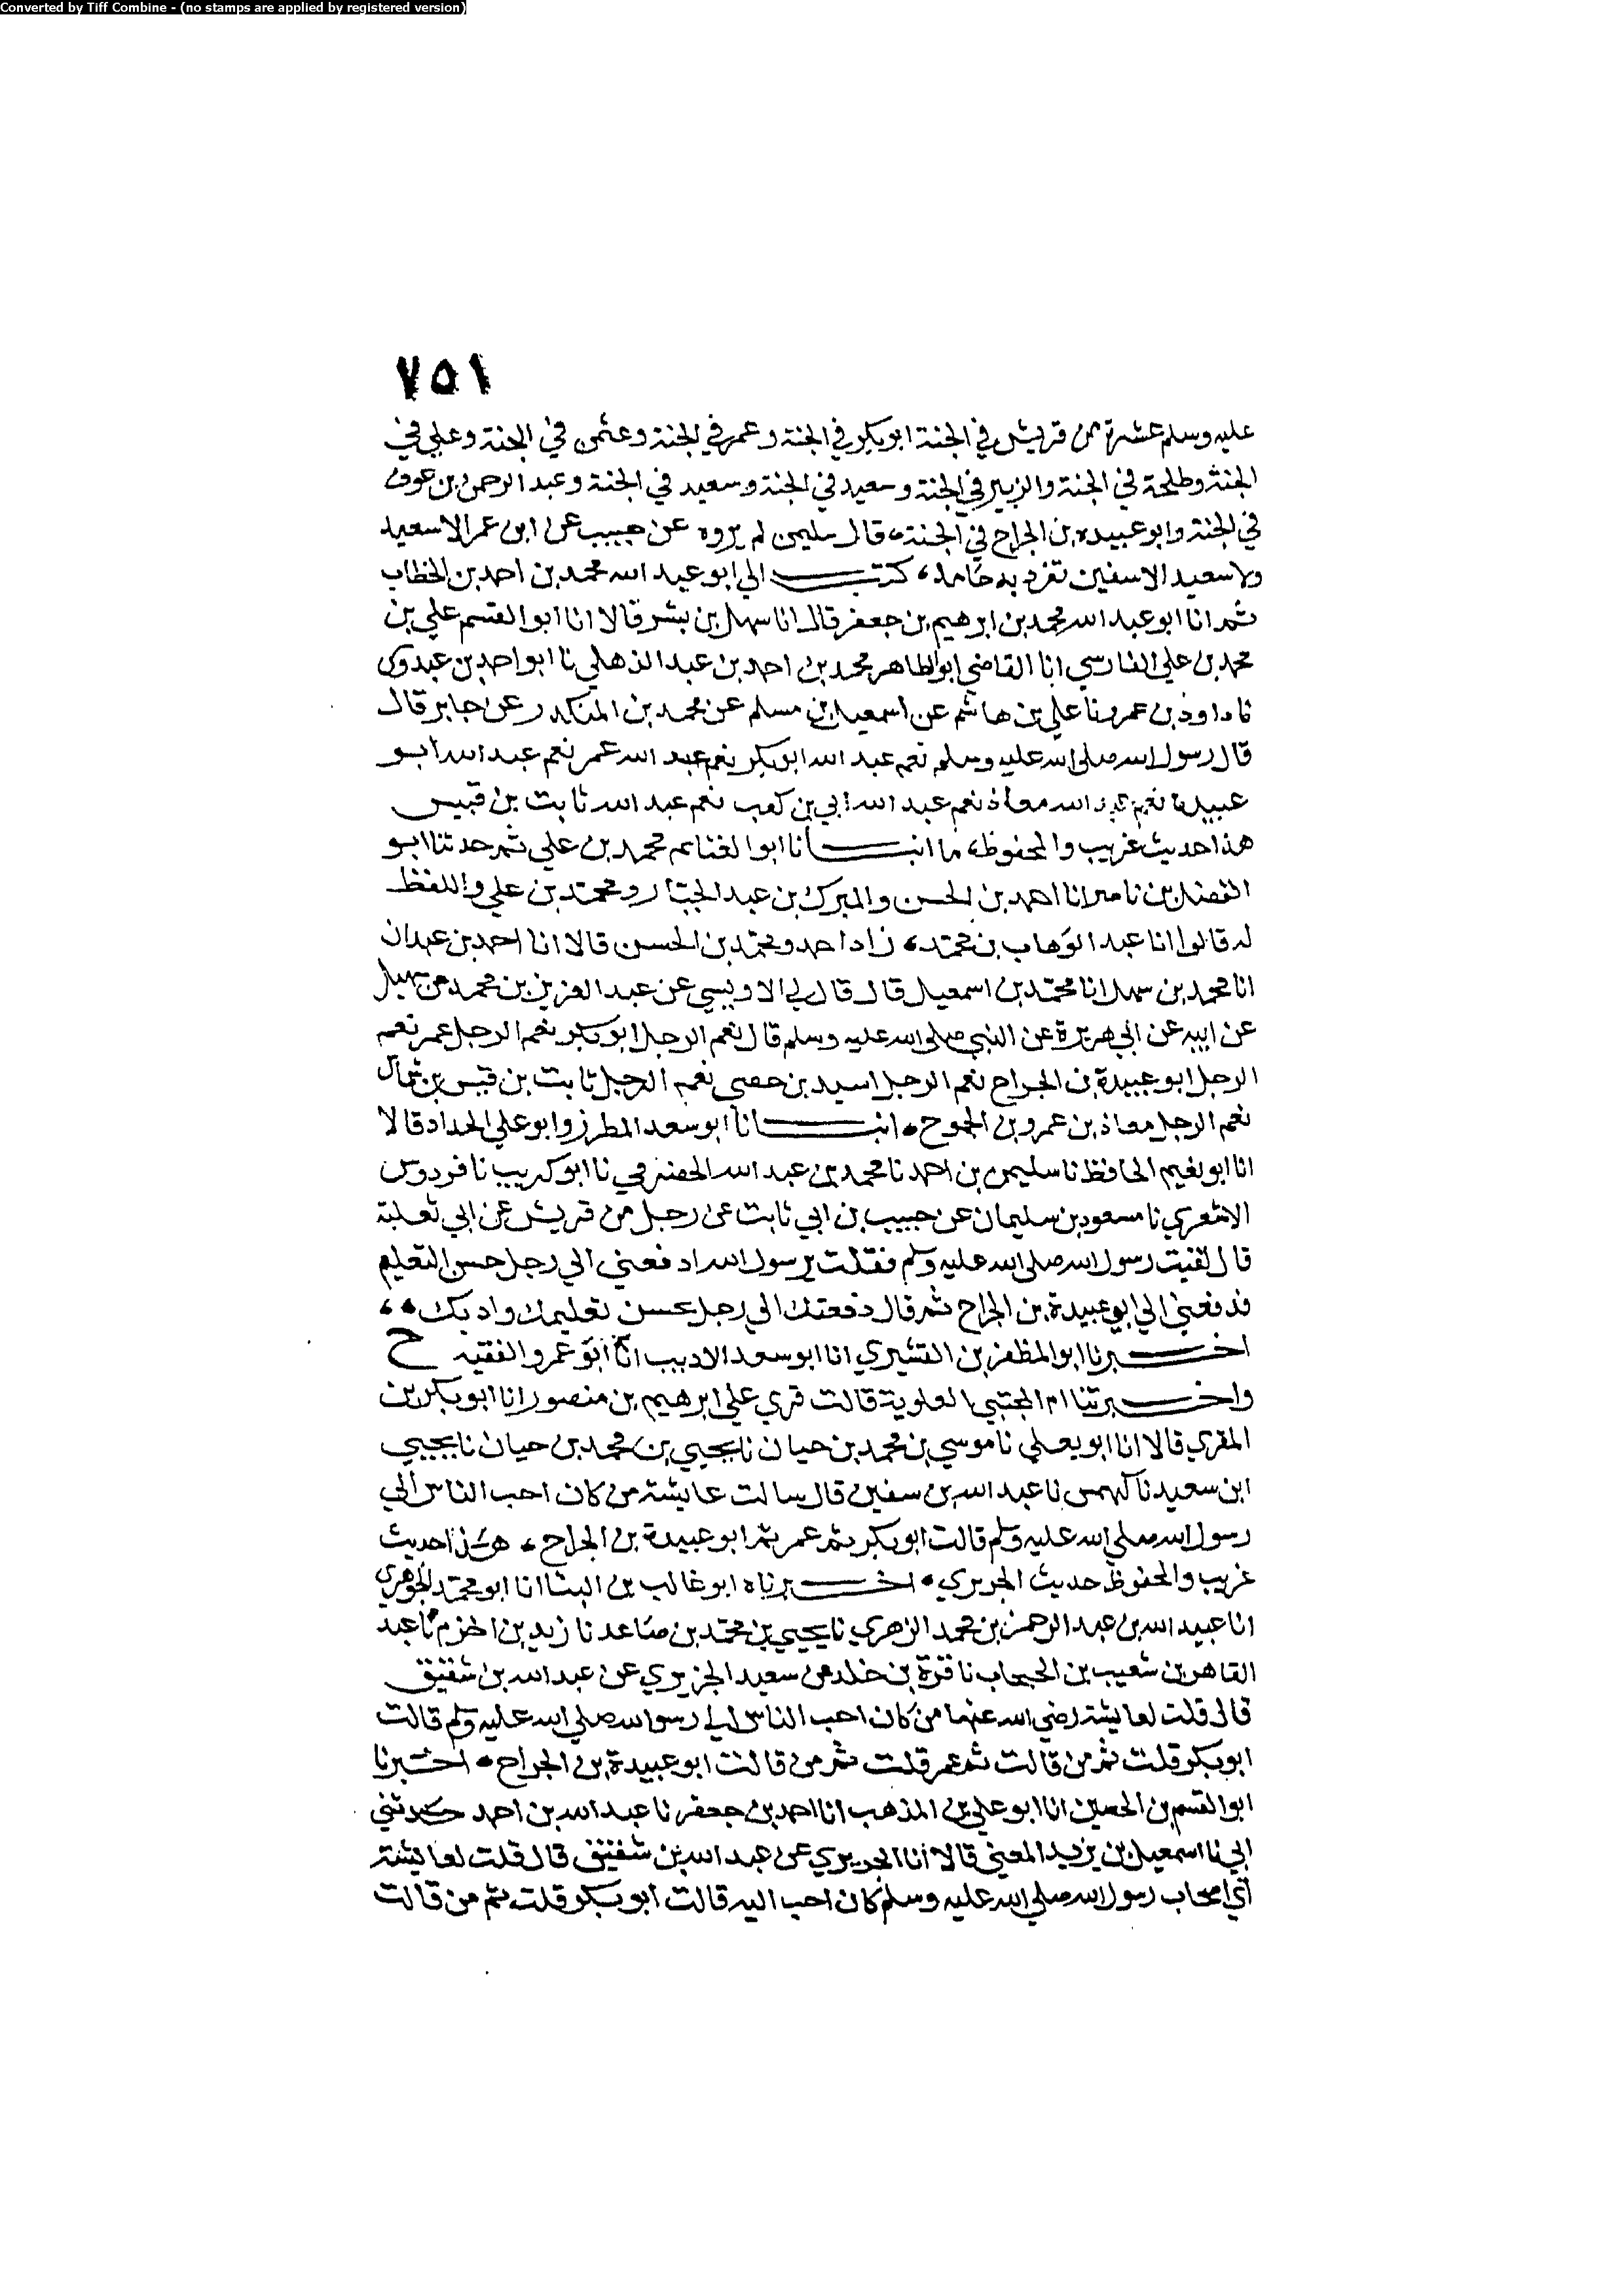 Converted by Tiff Combine - (no stamps are applied by registered version)
٧٥١
عليه وسلم عشرة من قريش في الجنة ابو بكر في الجنة وعمر في الجنة وعثمن في الجنة وعلي في
الجنة وطلحة في الجنة والزبير في الجنة وسعيد في الجنة وسعيد في الجنة وعبد الرحمن بن عوف
في الجنة وابو عبيدة بن الجراح في الجنة، قال سليمن لم يروه عن حبيب عن ابن عمر الا سعيد
ولا سعيد الا سفين تفرد به حامد، كتب الي ابو عبد الله محمد بن احمد بن الخطاب
ثم انا ابو عبد الله محمد بن ابرهيم بن جعفر قال انا سهل بن بشر قالا انا ابو القسم علي بن
محمد بن علي الفارسي انا القاضي ابو الطاهر محمد بن احمد بن عبد الذهلي نا ابو احمد بن عبدوس
نا داود بن عمرو نا علي بن هاشم عن اسمعيل بن مسلم عن محمد بن المنكدر عن جابر قال
قال رسول الله صلى الله عليه وسلم نعم عبد الله ابو بكر نعم عبد الله عمر نعم عبد الله ابو
عبيدة نعم عبد الله معاذ نعم عبد الله ابي بن كعب نعم عبد الله ثابت بن قيس
هذا حديث غريب والمحفوظ، ما انبانا ابو الغنائم محمد بن علي ثم حدثنا ابو
الفضل بن ناصر انا احمد بن الحسن والمبرك بن عبد الجبار ومحمد بن علي واللفظ
له قالوا انا عبد الوهاب بن محمد، زاد احمد ومحمد بن الحسن قالا انا احمد بن عبدان
انا محمد بن سهل انا محمد بن اسمعيل قال قال لي الاويسي عن عبد العزيز بن محمد عن سهيل
عن ابيه عن ابي هريرة عن النبي صلى الله عليه وسلم قال نعم الرجل ابو بكر نعم الرجل عمر نعم
الرجل ابو عبيدة بن الجراح نعم الرجل اسيد بن حضير نعم الرجل ثابت بن قيس بن شماس
نعم الرجل معاذ بن عمرو بن الجموح، انبانا ابو سعد المطرز وابو علي الحداد قالا
انا ابو نعيم الحافظ نا سليمن بن احمد نا محمد بن عبد الله الحضرمي نا ابو كريب نا فردوس
الاشعري نا مسعود بن سليمان عن حبيب بن ابي ثابت عن رجل من قريش عن ابي ثعلبة
قال لقيت رسول الله صلى الله عليه وسلم فقلت يرسول الله ادفعني الي رجل حسن التعليم
فدفعني الي ابو عبيدة بن الجراح ثم قال دفعتك الي رجل يحسن تعليمك وادبك،،
اخبرنا ابو المظفر بن القشيري انا ابو سعد الاديب انا ابو عمرو الفقيه ح
واخبرتنا ام المجتبى العلوية قالت قري علي ابرهيم بن منصور انا ابو بكر بن
المقري قالا انا ابو يعلي نا موسي بن محمد بن حيان نا يحيي بن محمد بن حيان نا يحيي
ابن سعيد نا كهمس نا عبد الله بن سفين قال سالت عايشة من كان احب الناس الي
رسول الله صلي الله عليه وسلم قالت ابو بكر ثم عمر ثم ابو عبيدة بن الجراح، هذا حديث
غريب والمحفوظ حديث الجريري، اخبرناه ابو غالب بن البنا انا ابو محمد الجوهري
انا عبيد الله بن عبد الرحمن بن محمد الزهري نا يحيي بن محمد بن صاعد نا زيد بن اخزم نا عبد
القاهر بن شعيب بن الحبحاب نا قرة بن خلد عن سعيد الجريري عن عبد الله بن شقيق
قال قلت لعايشة رضي الله عنها من كان احب الناس الي رسول الله صلي الله عليه وسلم قالت
ابو بكر قلت ثم من قالت ثم عمر قلت ثم من قالت ابو عبيدة بن الجراح، اخبرنا
ابو القسم بن الحصين انا ابو علي بن المذهب انا احمد بن جعفر نا عبد الله بن احمد حدثني
ابي نا اسمعيل بن يزيد المعني قالا انا الجريري عن عبد الله بن شقيق قال قلت لعايشة
اي اصحاب رسول الله صلي الله عليه وسلم كان احب اليه قالت ابو بكر قلت ثم من قالت